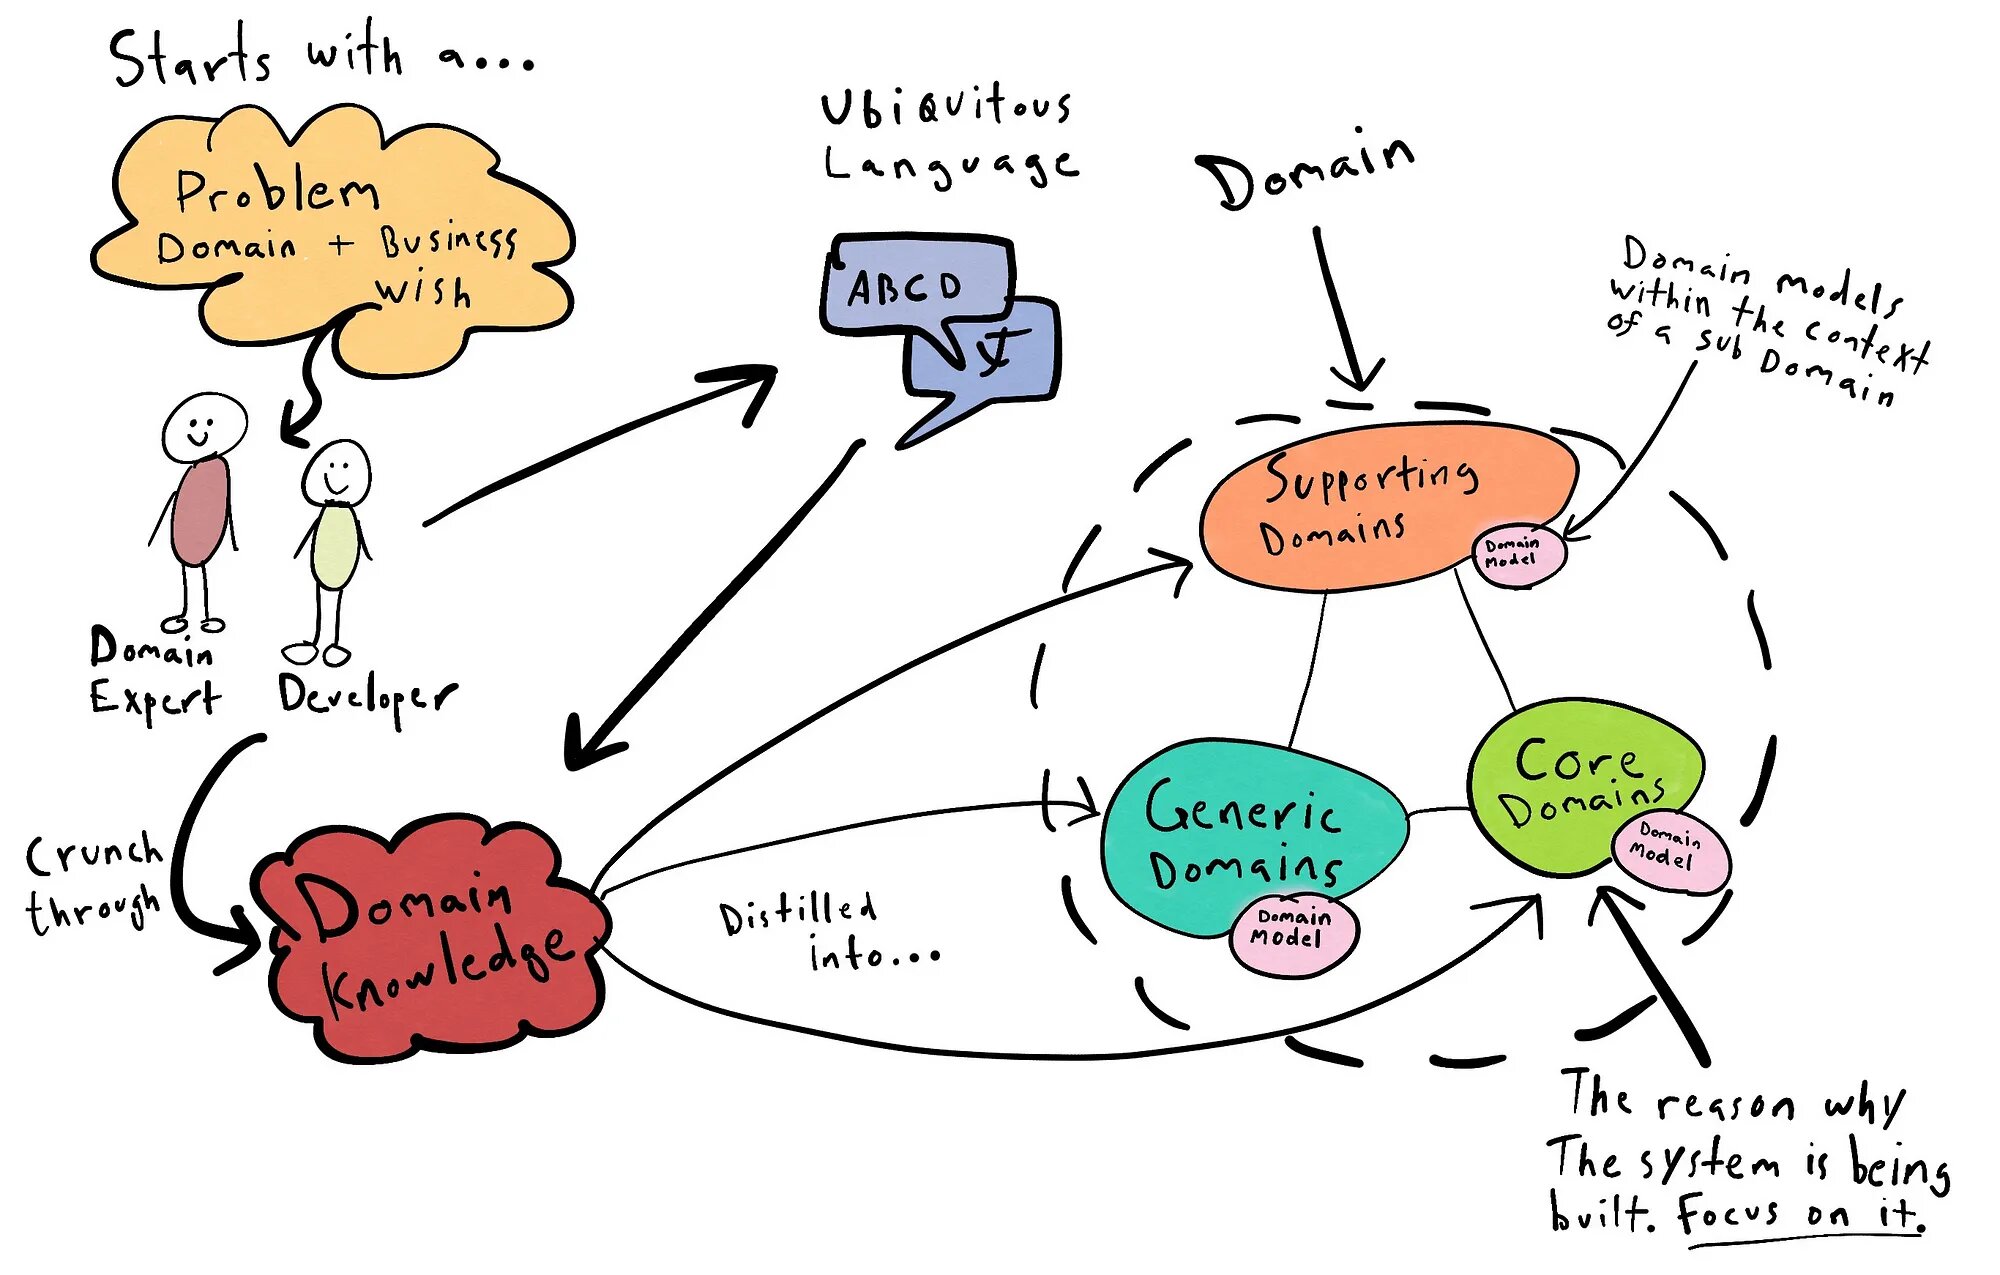 Starts with a...
Problem
Domain + Business
Wish
Domain
Expert
Developer
Crunch
through
Domain
Knowledge
Ubiquitous
Language
ABCD
Distilled
into...
Domain
Domain models
within the context
of a sub Domain
Supporting
Domains
Domain
Model
Generic
Domains
Domain
Model
Core
Domains
Domain
Model
The reason why
The system is being
built. Focus on it.